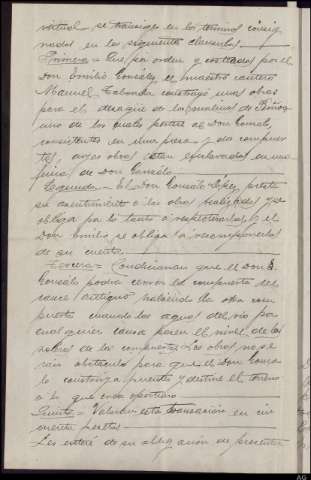 virtual = se transigen en los terminos consig
nados en las siguientes clausulas
Primera = Que por orden y contrados por el
Don Emilio González, el maestro cantero
Manuel Taboada construyó unas obras
para el desagüe de las
uno de los cuales partir de Don Gonzalo,
consistentes en una presa y dos compuer
tas, cuyas obras estan enclavadas en una
finca de Don Gonzalo
Segunda = El Don Gonzalo López presta
su asentimiento a las obras realizadas y se
obliga por lo tanto a respetarlas y el
Don Emilio se obliga á
de su cuenta.
Tercera = Condicionan que el Don
Gonzalo podrá cerrar el compuerta del
cauce antiguo la otra com
puerta cuando las aguas del rio por
cualquier causa pasen el nivel de las
soleras de las compuertas. Las obras no se
rán obstaculo para que el Don Gonza
lo construya puentes y destine el terreno
a lo que crea oportuno
Quinta = Valuan esta transacción en cin
cuenta pesetas
Les enteré de su obligación de presentar